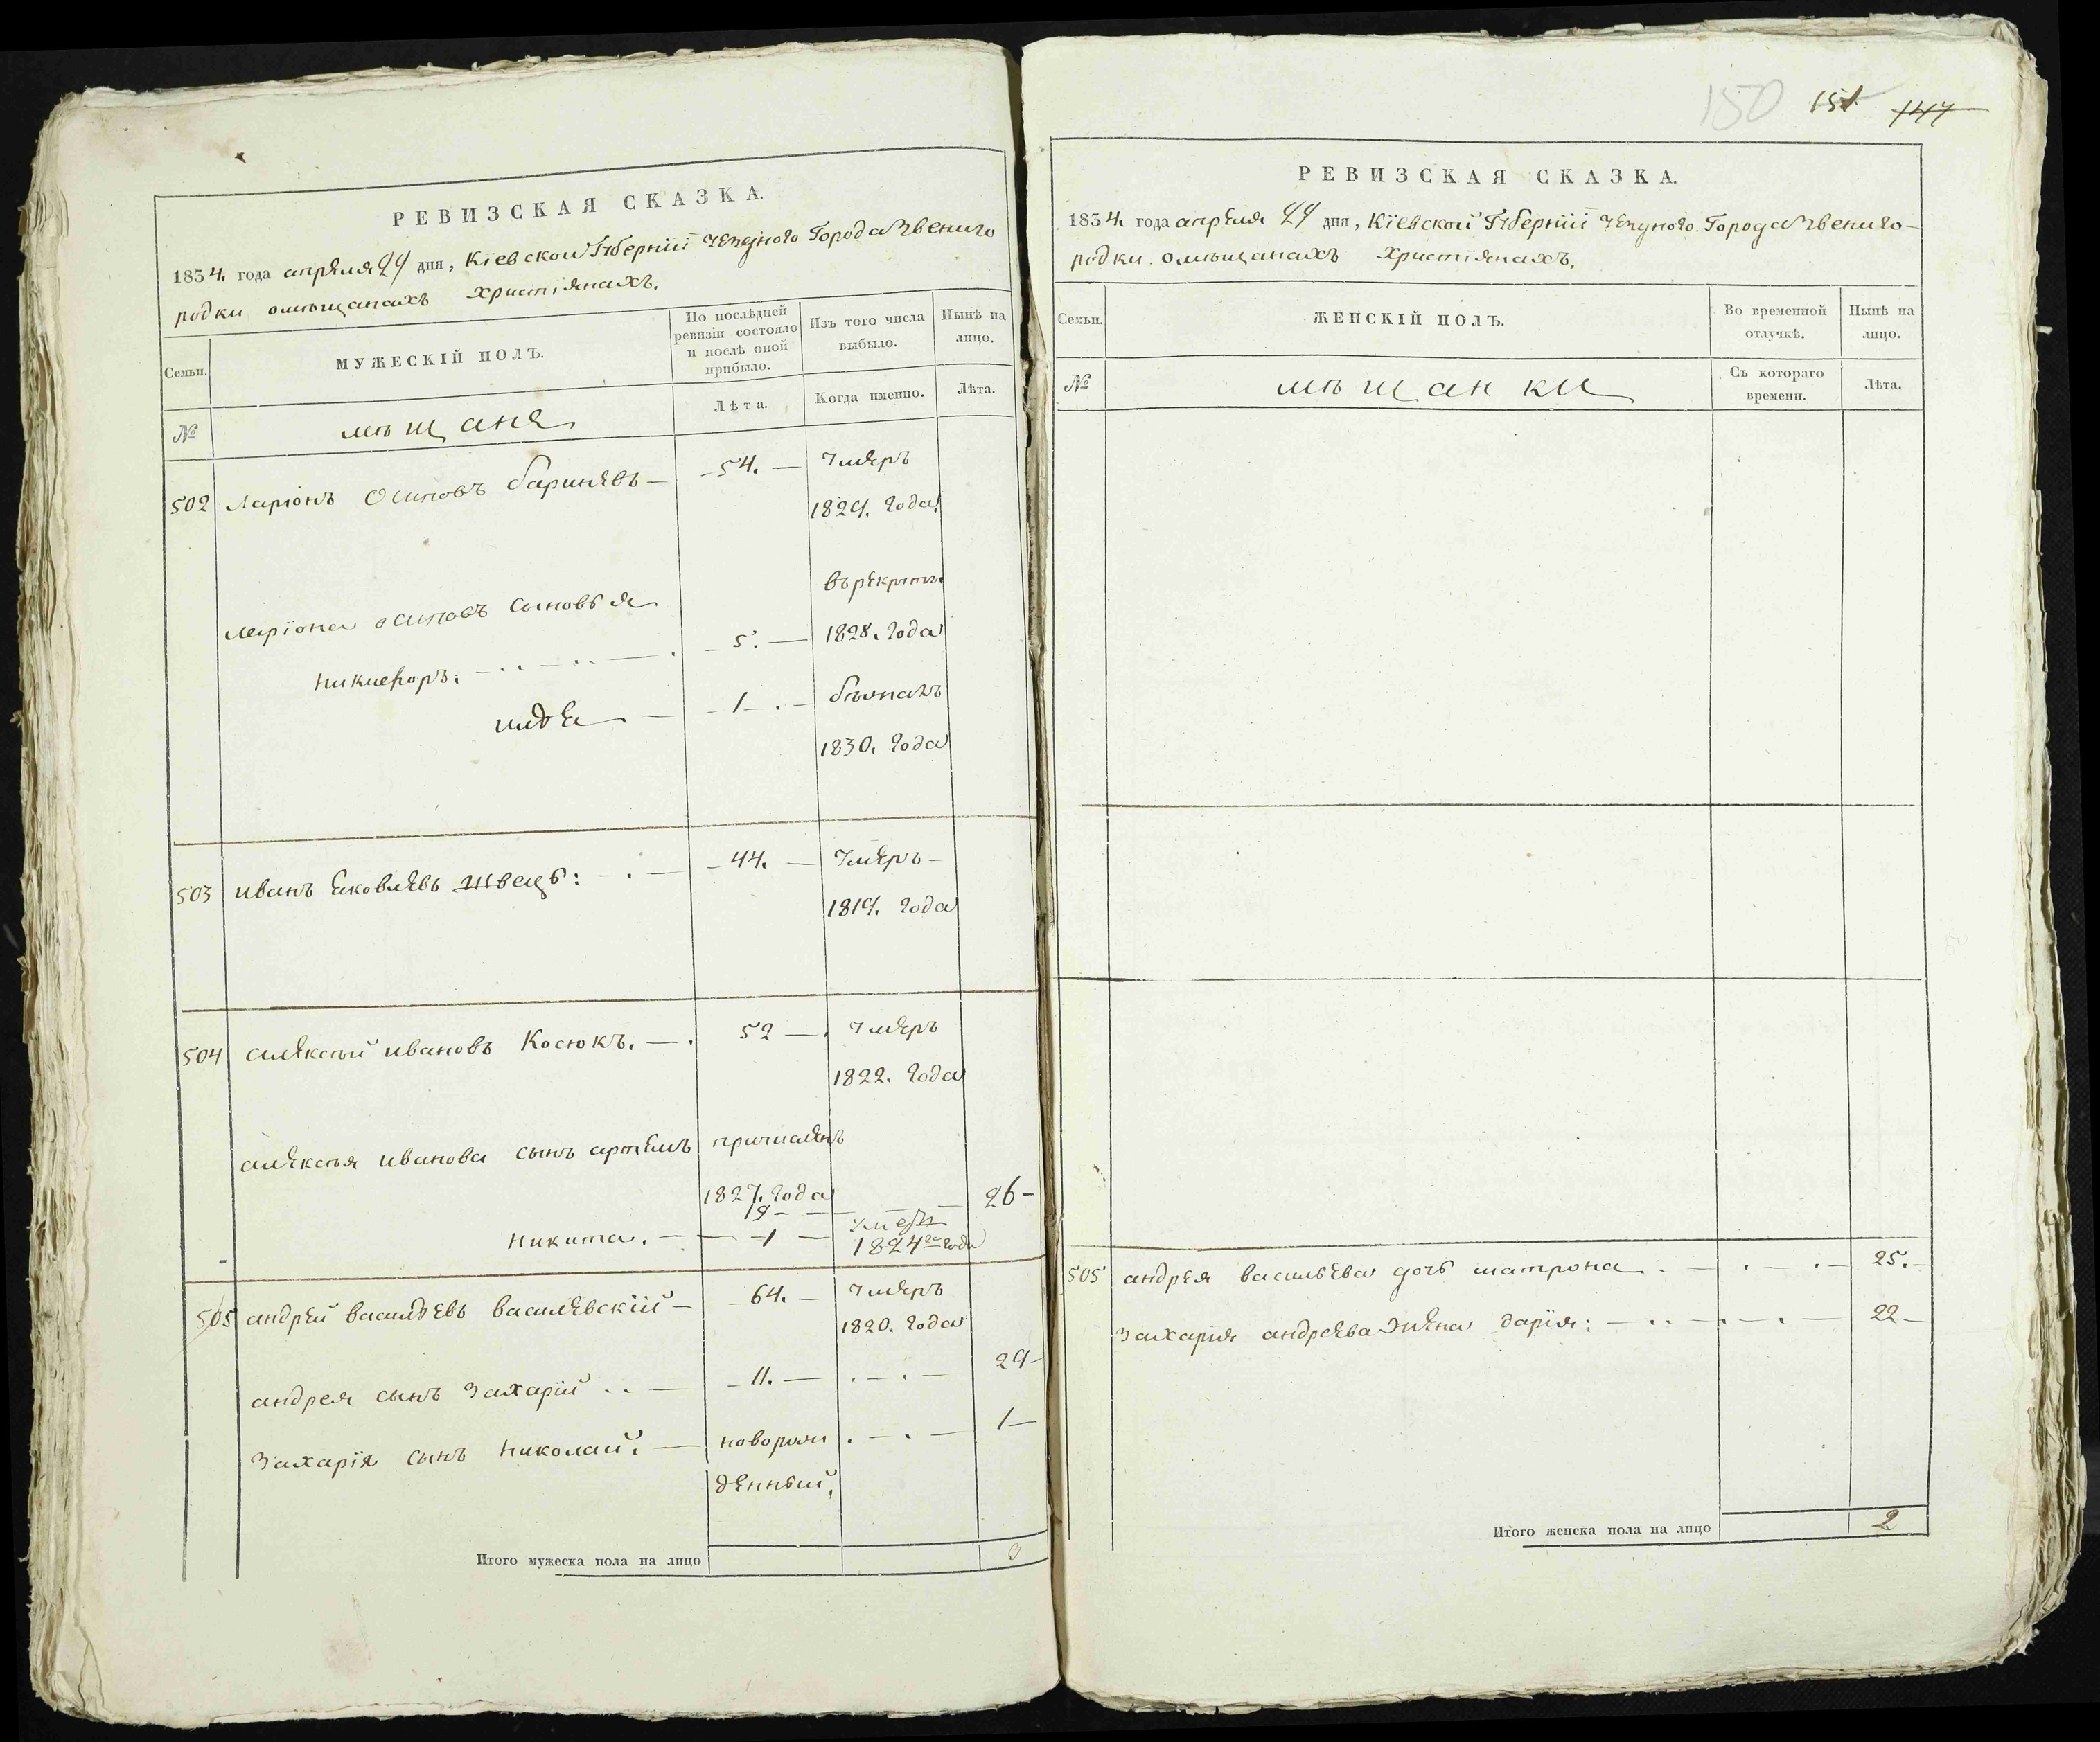 РЕВИЗСКАЯ СКАЗКА.
1834. года апреля 29 дня, Кіевской Губерніи Уезднаго Города Звениго
родки омѣщанахъ християнахъ.
Семьи.
МУЖЕСКІЙ ПОЛЪ.
По послѣдней ревизіи состояло и послѣ оной прибыло.
Изъ того числа выбыло.
Нынѣ на лицо.
№
мѣщане
Лѣта.
Когда именно.
Лѣта.
502 Ларіонъ Осиповъ — 54. — Умеръ
1829. Года
Ларіона осиповъ сыновья въ рекруты
Никифоръ: — 5. — 1828. Года
— 1 — бѣжалъ
1830. Года
503 иванъ Яковлевъ Швець: — 44. — Умеръ —
1819. Года
504 алексѣй ивановъ Косюкъ. — 52 — Умеръ
1822. Года
алексѣя иванова сынъ артемъ причисленъ
1827. Года
19 — — — 26 —
никита. — 1 — умеръ
1824го Года
505 андрей васильевъ василевскій — 64. — Умеръ
1820. Года
андрея сынъ Захарій — 11. — 29 —
Захарія сынъ николай. — новорож 1 —
денный,
Итого мужеска пола на лицо 3
150 151 147
РЕВИЗСКАЯ СКАЗКА.
1834. года апреля 29 дня, Кіевской Губерніи Уезднаго. Города Звениго-
родки. омѣщанахъ Християнахъ.
Семьи.
ЖЕНСКІЙ ПОЛЪ.
Во временной отлучкѣ.
Нынѣ на лицо.
№
мѣщанки
Съ котораго времени.
Лѣта.
505 андрея васильева дочь матрона — 25. —
Захарія андреева жена дарія: — 22 —
Итого женска пола на лицо 2